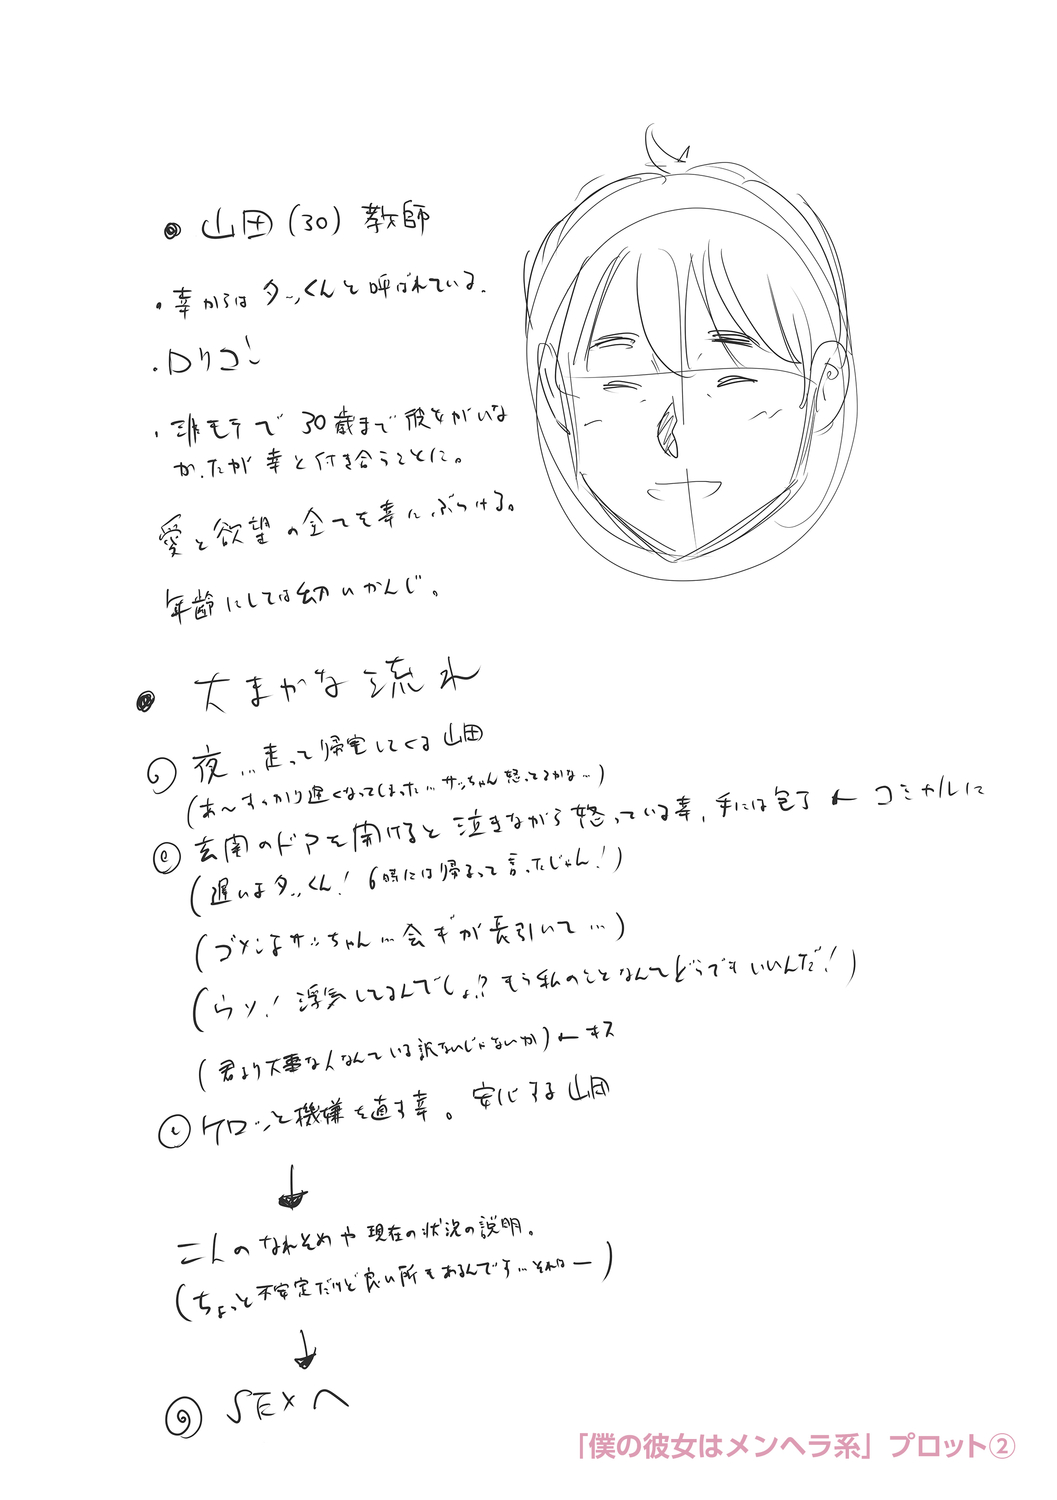 山田（30）教師
・幸からはタッくんと呼ばれている。
・ロリコン
・非モテで30歳まで彼女がいな
かったが幸と付き合うことに。
愛と欲望の全てを幸にぶつける。
年齢にしては幼いかんじ。
大まかな流れ
夜…走って帰宅してくる山田
（あ〜すっかり遅くなってしまった…サッちゃん怒ってるかな…）
玄関のドアを開けると泣きながら怒っている幸、手には包丁 ← コミカルに
（遅いよタッくん！6時には帰るって言ったじゃん！）
（ゴメンよサッちゃん…会ギが長引いて…）
（ウソ！浮気してるんでしょ!?もう私のことなんてどうでもいいんだ！）
（君より大事な人なんている訳ないじゃないか）←キス
ケロッと機嫌を直す幸。安心する山田
↓
二人のなれそめや現在の状況の説明。
（ちょっと不安定だけど良い所もあるんです…それは―）
↓
SEXへ
「僕の彼女はメンヘラ系」プロット②